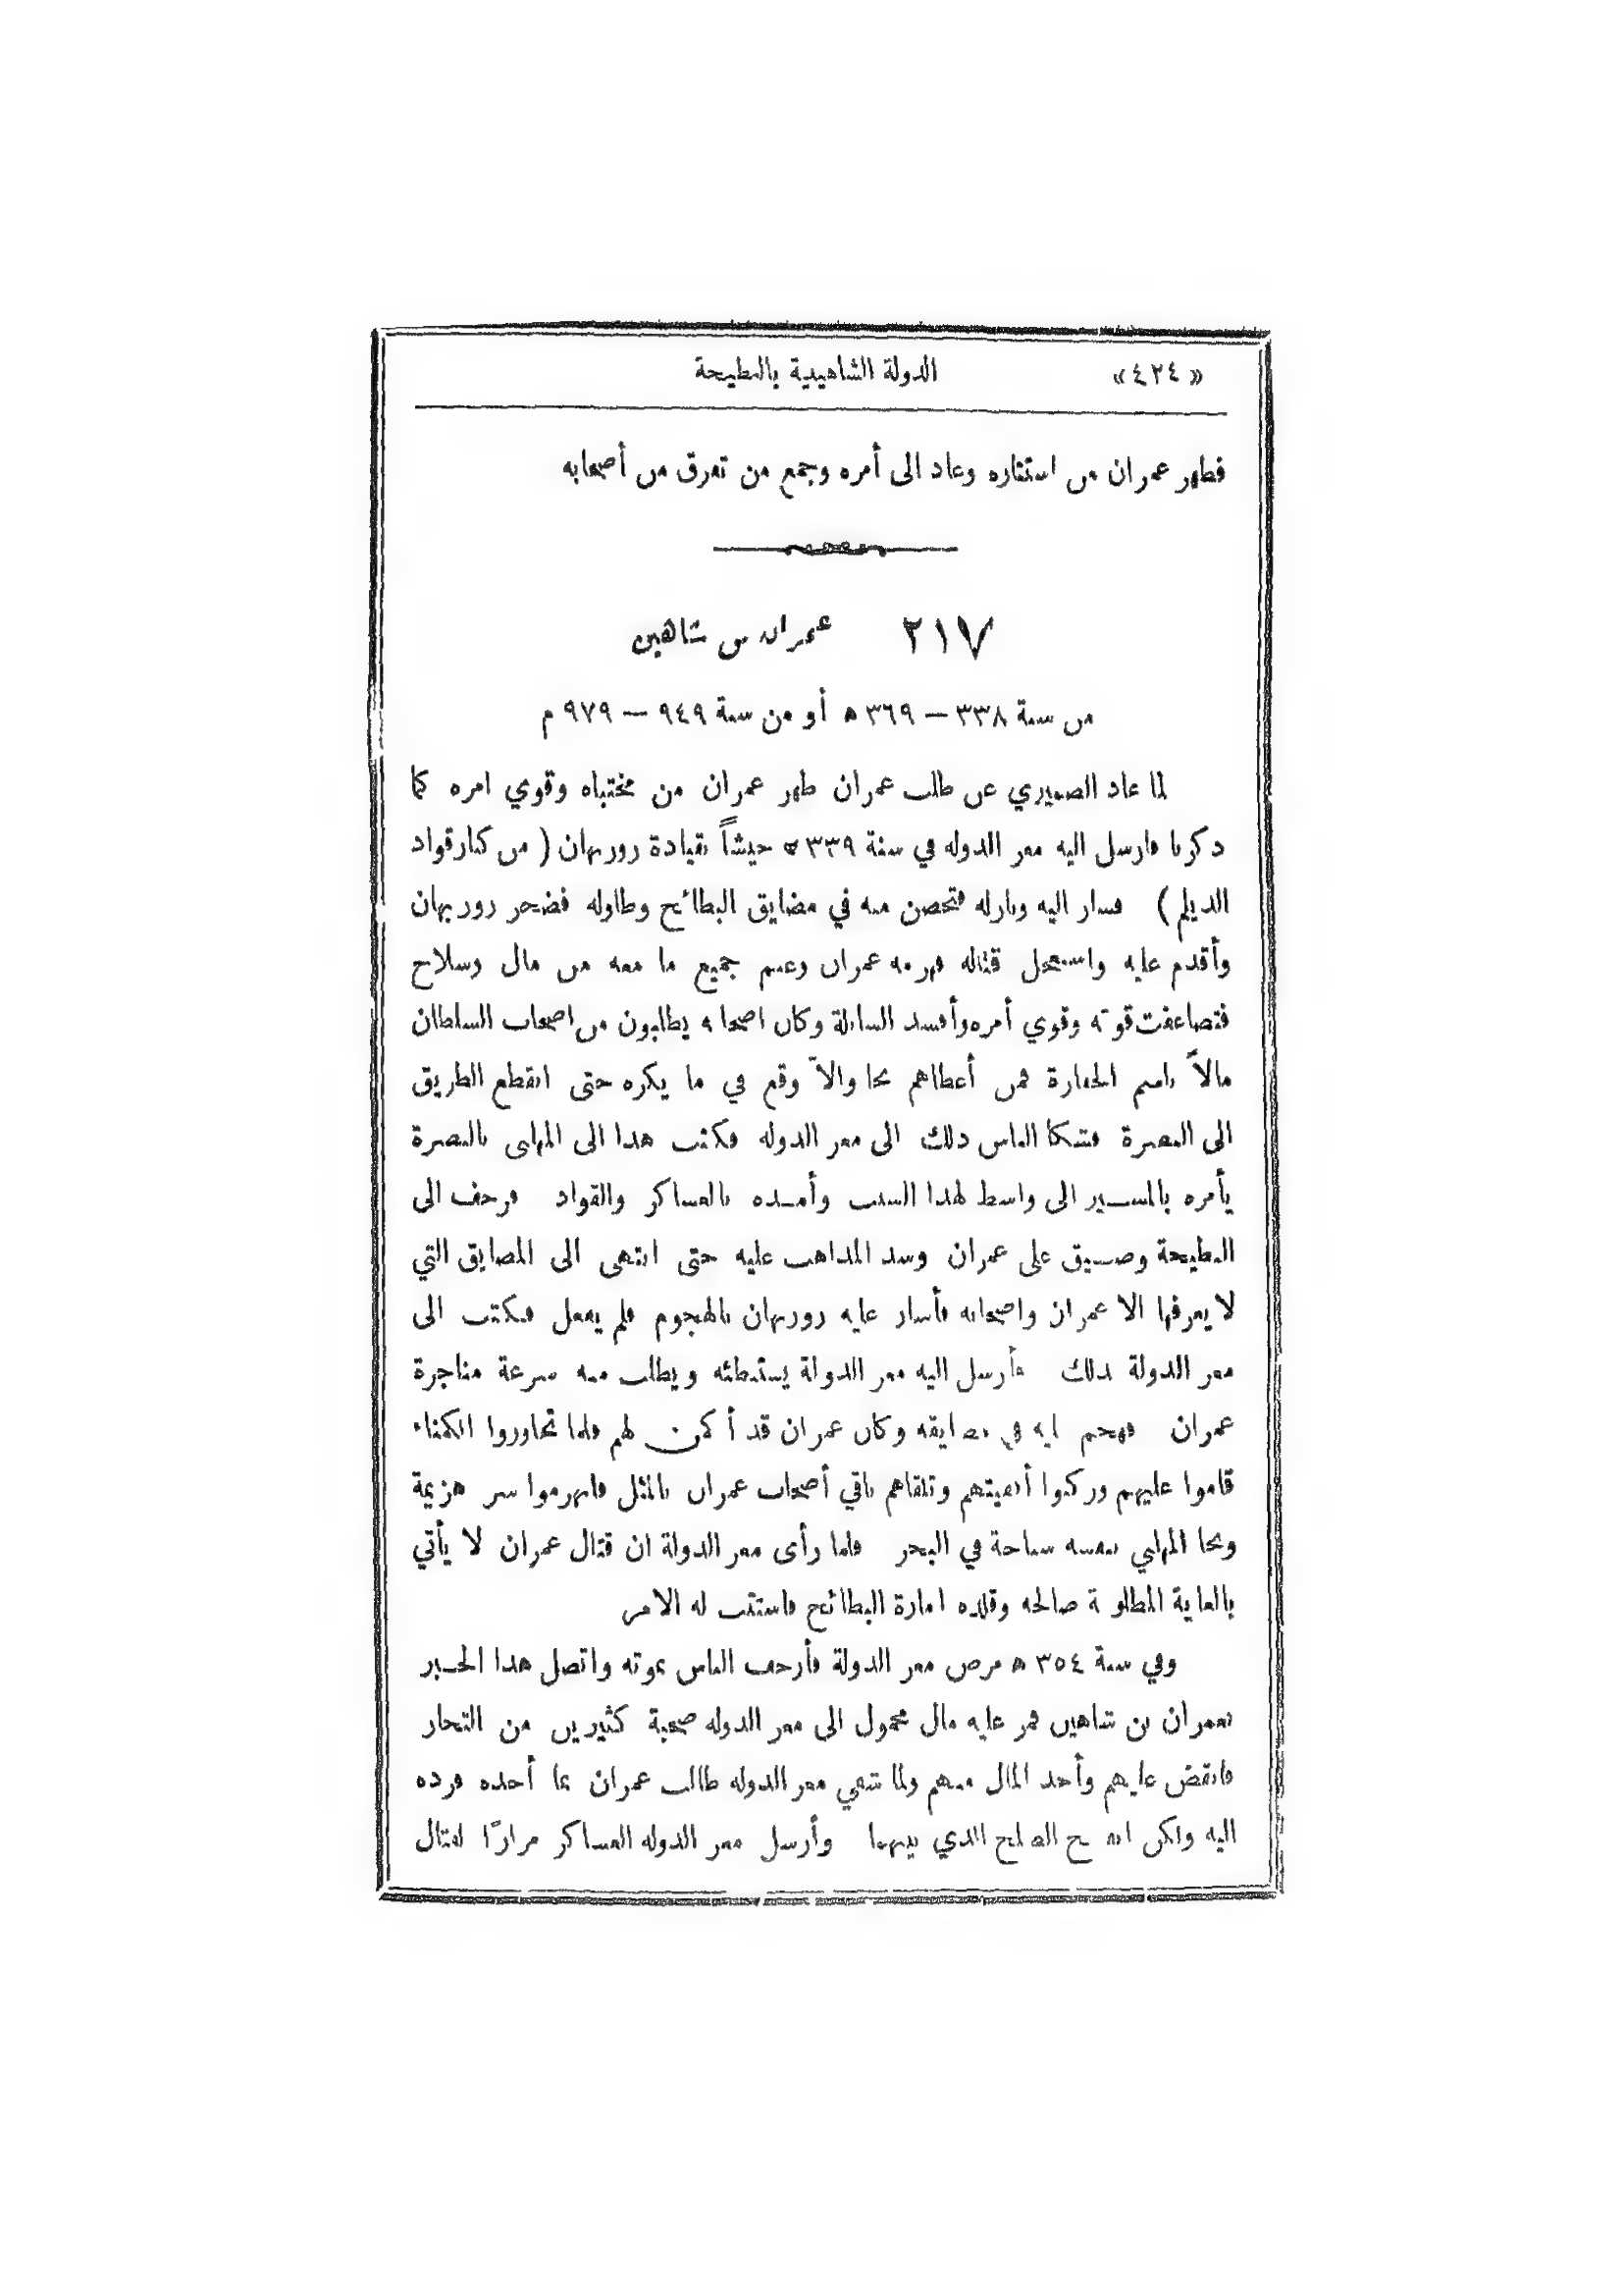 «٤٢٤» الدولة الشاهينية بالبطيحة
فظهر عمران من استتاره وعاد الى أمره وجمع من تفرق من أصحابه
٢١٧ عمران بن شاهين
من سنة ٣٣٨ – ٣٦٩ ه أو من سنة ٩٤٩ – ٩٧٩ م
لما عاد الصميري عن طلب عمران ظهر عمران من مختباه وقوي امره كما
ذكرنا فارسل اليه معز الدوله في سنة ٣٣٩ ه جيشاً بقيادة روزبهان ( من كبار قواد
الديلم ) فسار اليه ونازله فتحصن منه في مضايق البطائح وطاوله فضجر روزبهان
وأقدم عليه واستعجل قتاله فهزمه عمران وغنم جميع ما معه من مال وسلاح
فتضاعفت قوته وقوي أمره وأفسد السابلة وكان اصحابه يطلبون من اصحاب السلطان
مالاً باسم الخفارة فمن أعطاهم نجا والاّ وقع في ما يكره حتى انقطع الطريق
الى البصرة فشكا الناس ذلك الى معز الدوله فكتب هذا الى المهلبى بالبصرة
يأمره بالمسير الى واسط لهذا السبب وأمده بالعساكر والقواد فزحف الى
البطيحة وضيق على عمران وسد المذاهب عليه حتى انتهى الى المضايق التي
لا يعرفها الا عمران واصحابه فأشار عليه روزبهان بالهجوم فلم يفعل فكتب الى
معز الدولة بذلك فأرسل اليه معز الدولة يستبطئه ويطلب منه سرعة مناجزة
عمران فهجم عليه في مضايقه وكان عمران قد أكمن لهم فلما تجاوزوا الكمناء
قاموا عليهم وركبوا أقفيتهم وتلقاهم باقي أصحاب عمران بالمثل فانهزموا شر هزيمة
ونجا المهلبي بنفسه سباحة في البحر فلما رأى معز الدولة ان قتال عمران لا يأتي
بالغاية المطلوبة صالحه وقلده امارة البطائح فاستتب له الامر
وفي سنة ٣٥٤ ه مرض معز الدولة فأرجف الناس بموته واتصل هذا الخبر
بعمران بن شاهين فمر عليه مال محمول الى معز الدوله صحبة كثيرين من التجار
فانقض عليهم وأخذ المال منهم ولما شفي معز الدوله طالب عمران بما أخذه فرده
اليه ولكن انفسخ الصلح الذي بينهما وأرسل معز الدوله العساكر مرارًا لقتال